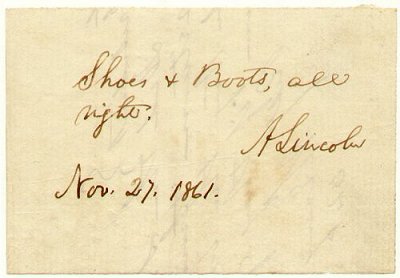 Shoes & Boots, all
right.
A Lincoln
Nov. 27. 1861.